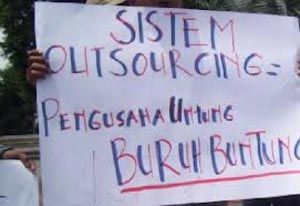 SISTEM
OUTSOURCING =
PENGUSAHA UNTUNG
BURUH BUNTUNG